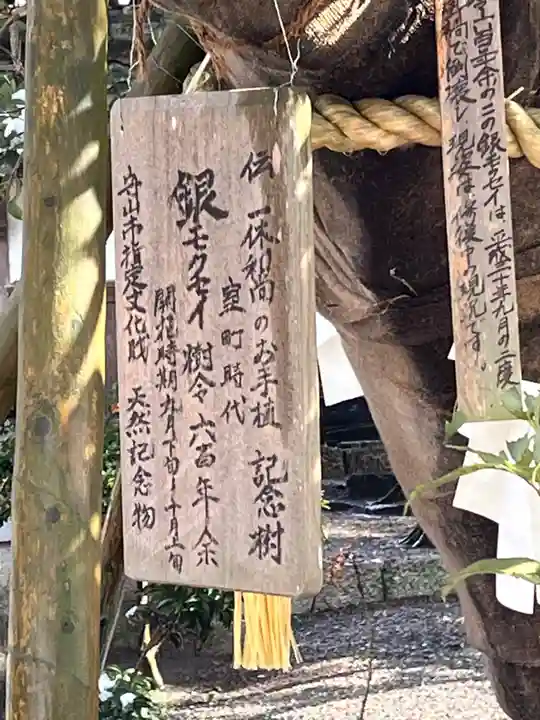 伝 一休和尚のお手植 記念樹
室町時代
銀モクセイ 樹令 六百年余
開花時期 九月下旬〜十月上旬
守山市指定文化財 天然記念物
余のこの銀モクセイは、平成二十年九月の二度
倒壊し現姿は修復中の現況です。